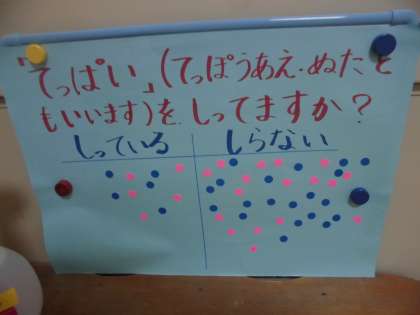 「てっぱい」(てっぽうあえ・ぬたと
もいいます)を しってますか?
しっている しらない